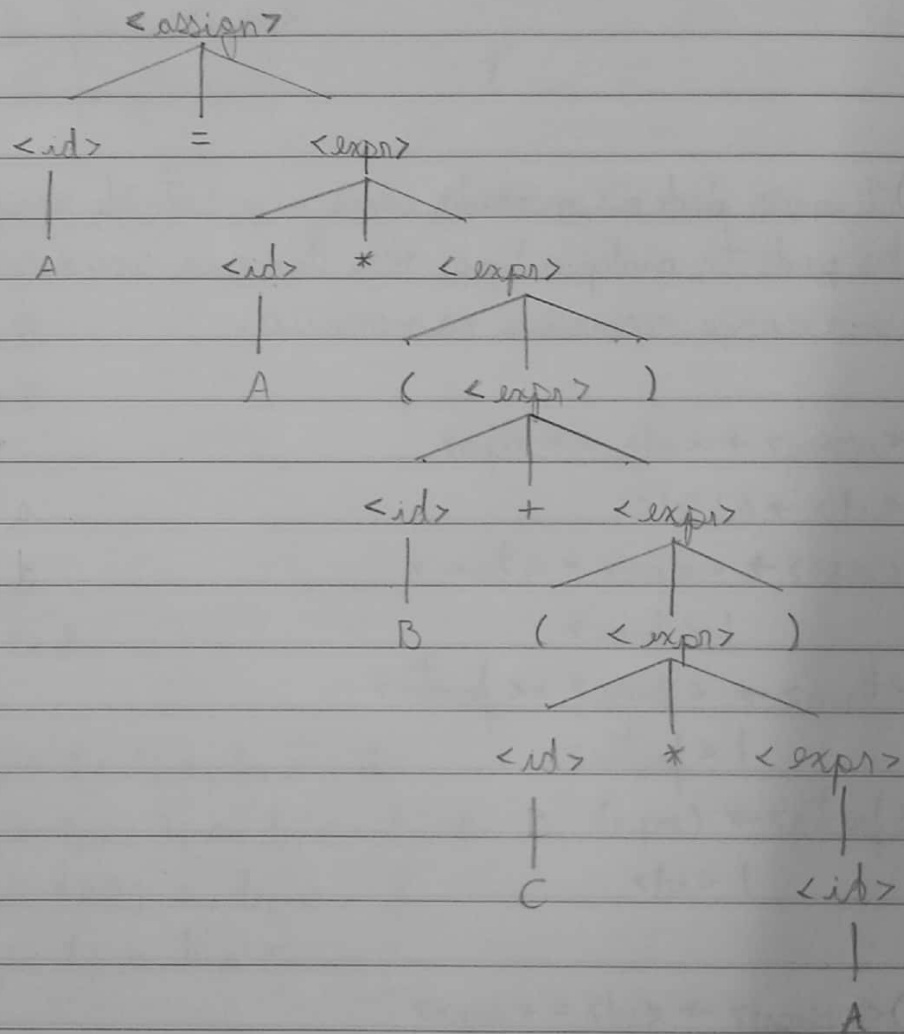 <assign>
<id> = <expr>
A <id> * <expr>
A ( <expr> )
<id> + <expr>
B ( <expr> )
<id> * <expr>
C <id>
A